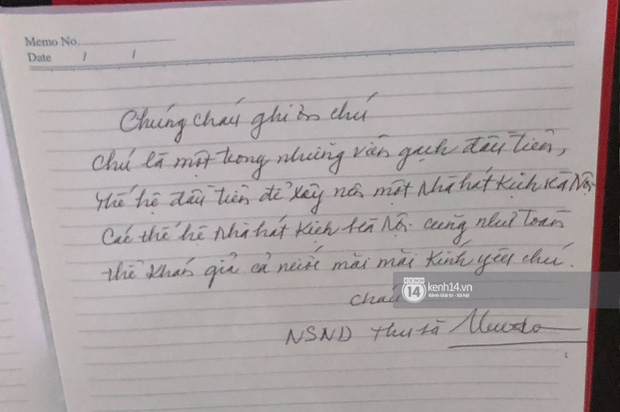 Memo No.
Date / /
Chúng cháu ghi ơn chú
Chú là một trong những viên gạch đầu tiên,
thế hệ đầu tiên để xây nên một Nhà hát Kịch Hà Nội.
Các thế hệ Nhà hát Kịch Hà Nội cũng như toàn
thể khán giả cả nước mãi mãi kính yêu chú.
Cháu
NSND Thu Hà
KÊNH GIẢI TRÍ - XÃ HỘI
14
kenh14.vn